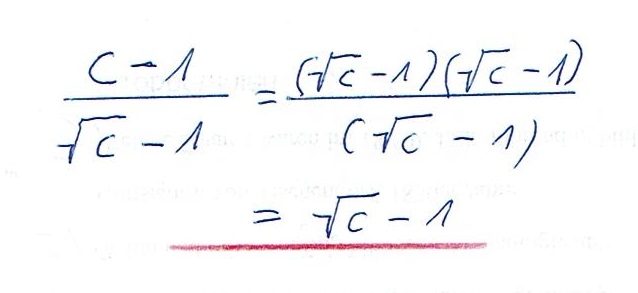 (c - 1) / (√c - 1) = (√c - 1)(√c - 1) / (√c - 1)
= √c - 1